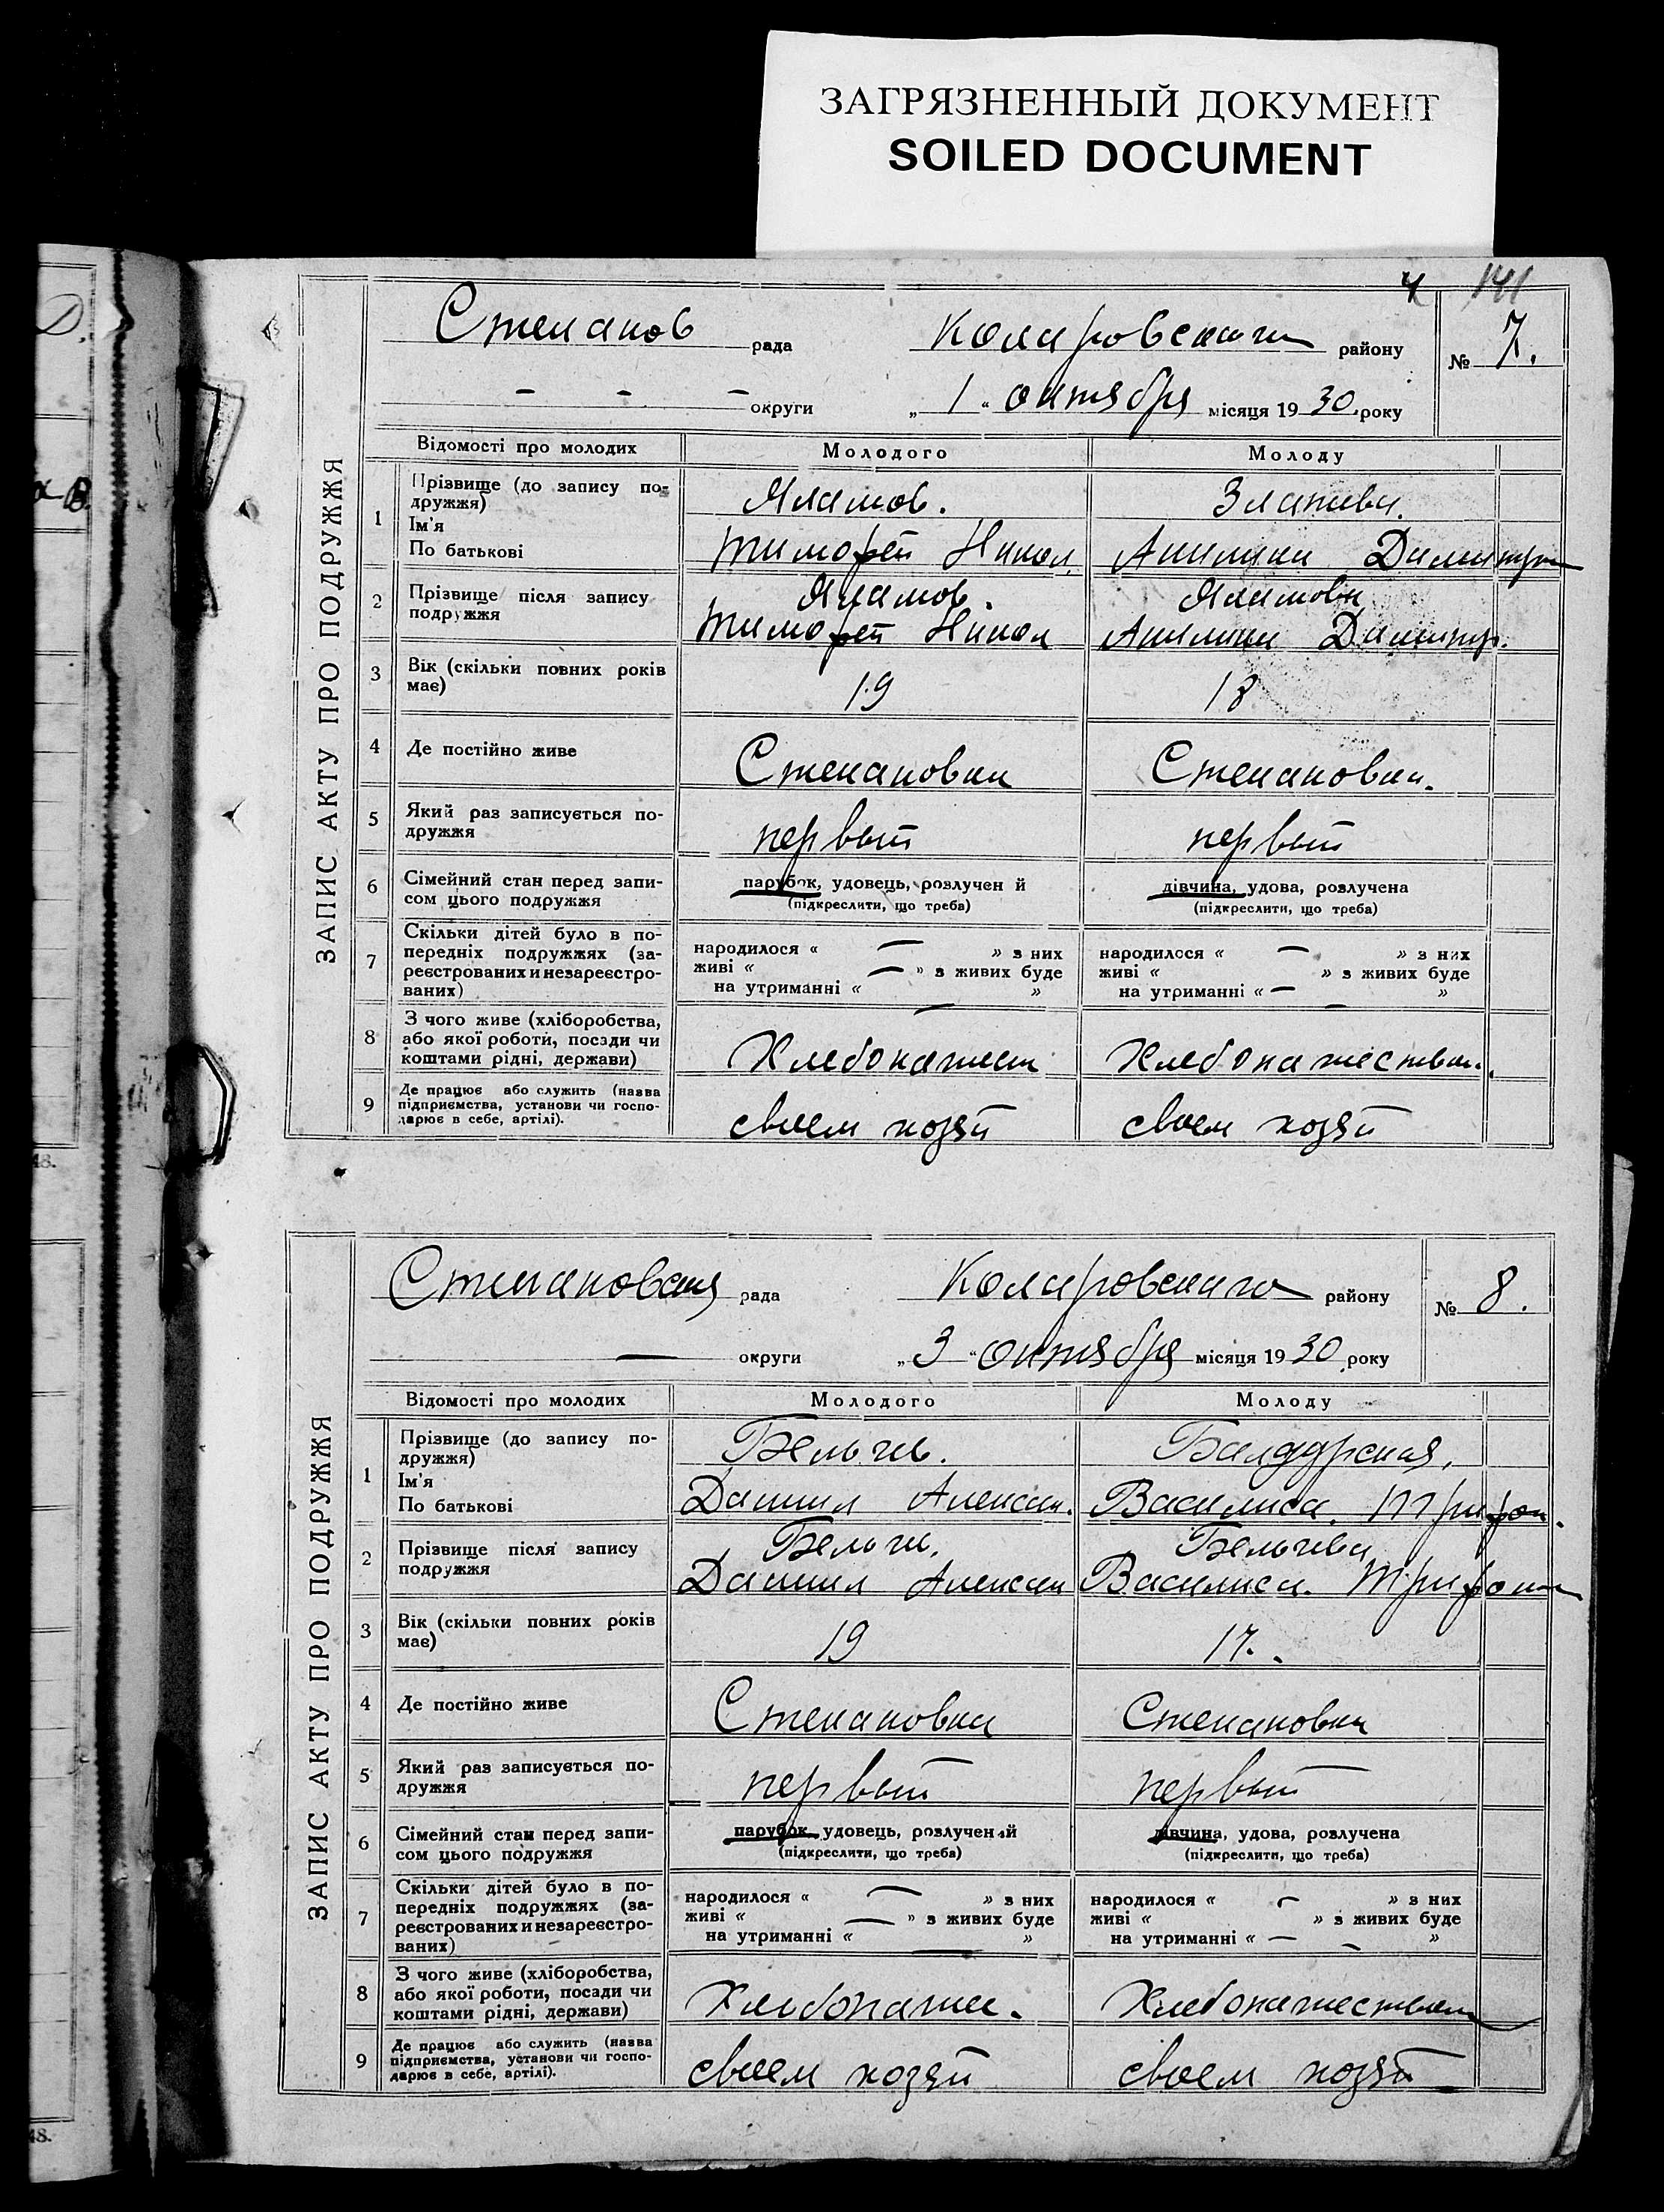 ЗАГРЯЗНЕННЫЙ ДОКУМЕНТ
SOILED DOCUMENT
4 141
ЗАПИС АКТУ ПРО ПОДРУЖЖЯ
Степанов рада Коларовского району № 7.
— — — округи „ 1 “ октября місяця 19 30 року
Відомості про молодих Молодого Молоду
1 Прізвище (до запису по-
дружжя)
Ім'я
По батькові
Яламов. Златева.
Тимофей Никол. Акилина Димитри
2 Прізвище після запису
подружжя
Яламов. Яламова
Тимофей Никол Акилина Димитр.
3 Вік (скільки повних років
має)
19 18
4 Де постійно живе Степановка Степановка.
5 Який раз записується по-
дружжя
первый первый
6 Сімейний стан перед запи-
сом цього подружжя
парубок, удовець, розлучен й дівчина, удова, розлучена
(підкреслити, що треба) (підкреслити, що треба)
7 Скільки дітей було в по-
передніх подружжях (за-
реєстрованих и незареєстро-
ваних)
народилося « — » з них народилося « — » з них
живі « — » з живих буде живі « » з живих буде
на утриманні « — » на утриманні « — »
8 З чого живе (хліборобства,
або якої роботи, посади чи
коштами рідні, держави)
Хлебопашест Хлебопашеством.
9 Де працює або служить (назва
підприємства, установи чи госпо-
дарює в себе, артілі).
своем хозяй своем хозяй
ЗАПИС АКТУ ПРО ПОДРУЖЖЯ
Степановская рада Коларовского району № 8.
— округи „ 3 “ октября місяця 19 30 року
Відомості про молодих Молодого Молоду
1 Прізвище (до запису по-
дружжя)
Ім'я
По батькові
Бельчев.
Даниил Алексан. Василиса. Трифон.
2 Прізвище після запису
подружжя
Бельче. Бельчева
Даниил Алексан Василиса. Трифон
3 Вік (скільки повних років
має)
19 17.
4 Де постійно живе Степановка Степановка
5 Який раз записується по-
дружжя
первый первый
6 Сімейний стан перед запи-
сом цього подружжя
парубок, удовець, розлучений дівчина, удова, розлучена
(підкреслити, що треба) (підкреслити, що треба)
7 Скільки дітей було в по-
передніх подружжях (за-
реєстрованих и незареєстро-
ваних)
народилося « — » з них народилося « — » з них
живі « — » з живих буде живі « » з живих буде
на утриманні « — » на утриманні « — »
8 З чого живе (хліборобства,
або якої роботи, посади чи
коштами рідні, держави)
Хлебопаше. Хлебопашеством
9 Де працює або служить (назва
підприємства, установи чи госпо-
дарює в себе, артілі).
своем хозяй своем хозяй